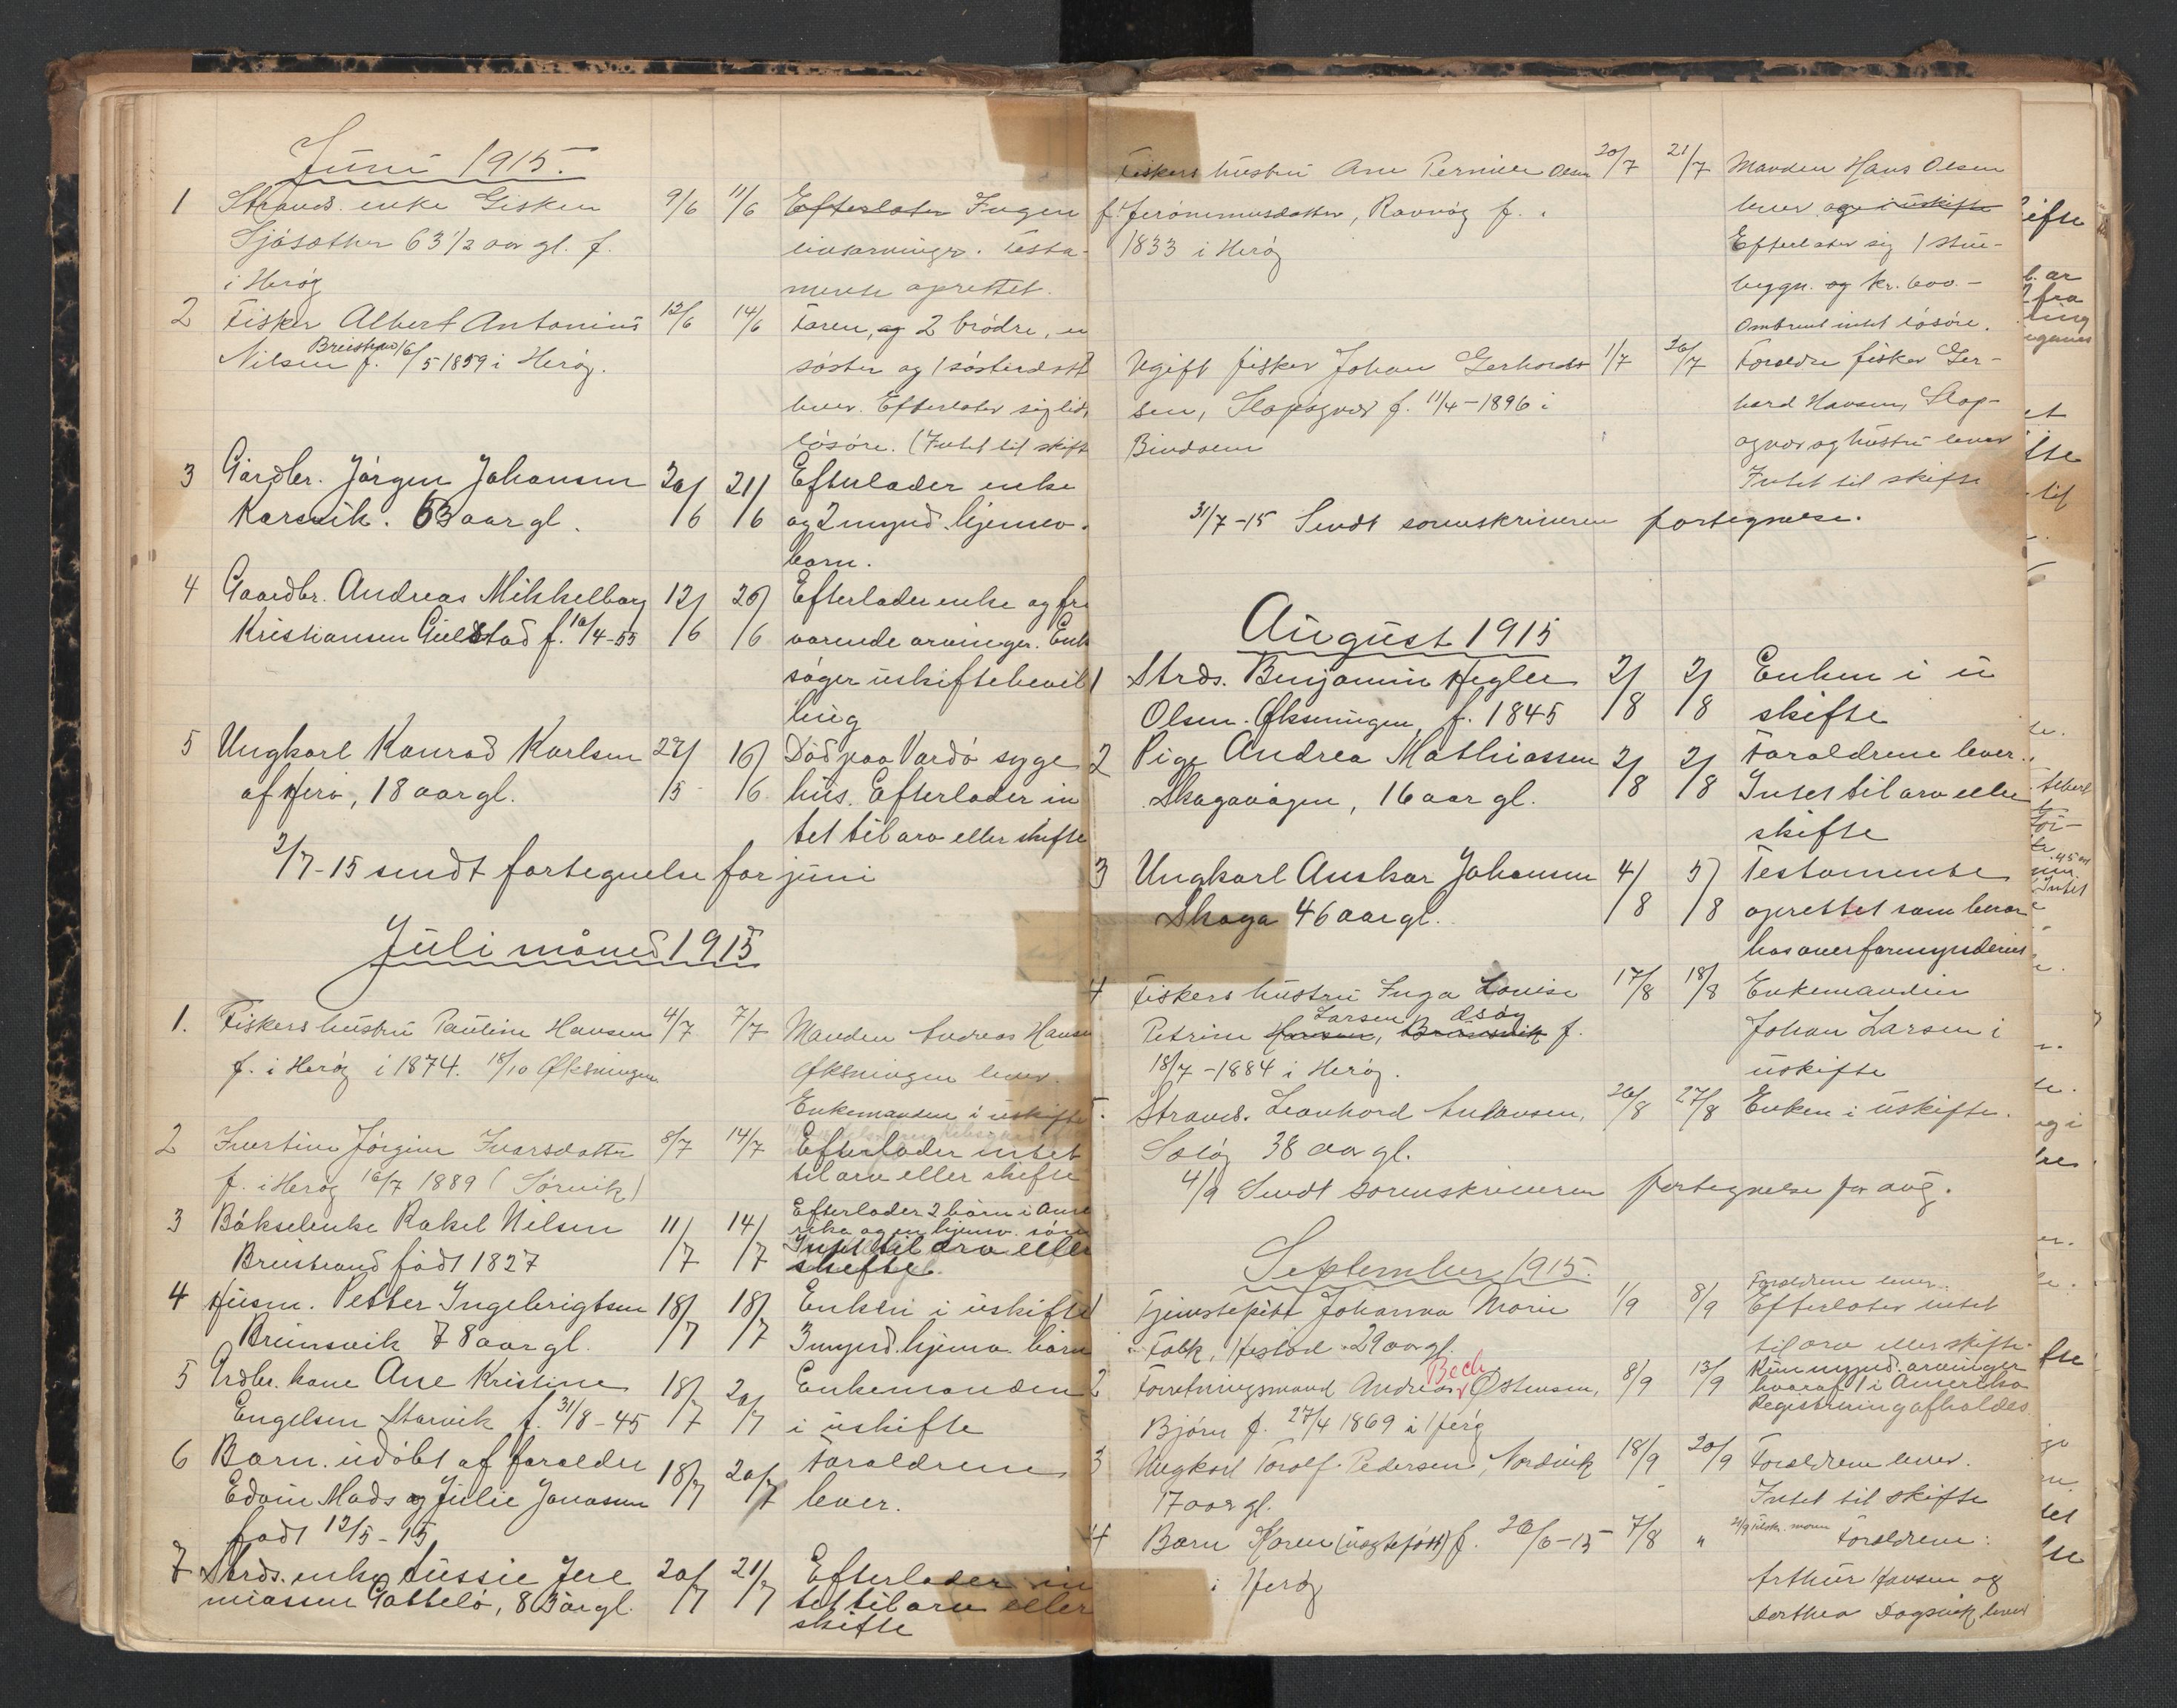 Juni 1915.
1 Strands. enke Gisken 9/6 11/6 Efterlater Ingen
Sjøsæther 63 1/2 aar gl. f. livsarvinger. Testa-
i Herøy mente oprettet.
2 Fisker Albert Antonius 12/6 14/6 Faren, og 2 brødre, en
Nilsen Breistrand f. 16/5 1859 i Herøy. søster og 1 søsterdatt
lever. Efterlater sig lidt
løsøre. (Intet til skifte
3 Gårdbr. Jørgen Johansen 20/6 21/6 Efterlader enke
Karsvik. 63 aar gl. og 2 mynd. hjemv.
barn.
4 Gaardbr. Andreas Mikkelborg 12/6 26/6 Efterlader enke og fra
Kristiansen Gulstad f. 10/4-55 værende arvinger. Enk
søger uskiftebevil
ling
5 Ungkarl Konrad Karlsen 27/5 16/6 Død paa Vardø syge
af Herø, 18 aar gl. hus. Efterlader in
tet til arv eller skifte
2/7-15 sendt fortegnelse for juni
Juli måned 1915
1. Fiskers hustru Pauline Hansen 4/7 7/7 Manden Andreas Hansen
f. i Herøy i 1874. 18/10 Øksningen Øksningen lever.
Enkemanden i uskifte
2 Ivertine Jørgine Ivarsdatter 8/7 14/7 Efterlader intet
f. i Herøy 16/7 1889 (Sørvik) til arv eller skifte
3 Bøkselenke Rakel Nilsen 11/7 14/7 Efterlader 2 børn i Ame
rika og en hjemv. søn
Breistrand født 1827 Intet til arv eller
skifte
4 Husm. Petter Ingebrigtsen 18/7 18/7 Enken i uskifte
Breimsvik 78 aar gl. 3 mynd. hjemv. børn
5 Grdbr. kone Ane Kristine 18/7 20/7 Enkemanden
Engelsen Storvik f. 31/8-45 i uskifte
6 Barn. udøbt af forældre 18/7 20/7 Forældrene
Edvin Mads og Julie Jonassen lever.
født 12/5-15
7 Strds. enke Aussie Jere 20/7 21/7 Efterlader in
miassen Gåsselø, 83 år gl. tet til arv eller
skifte
Fiskers hustru Ane Pernille Olsen 20/7 21/7 Manden Hans Olsen
f. Jerønimusdatter, Ravnøy f. lever og i uskifte
1833 i Herøy Efterlater sig 1 stue-
bygn. og kr. 600.-
Omtrent intet løsøre.
Ugift fisker Johan Gerhards 1/7 26/7 Forældre fisker Ger-
sen, Slapøyvær f. 11/4-1896 i hard Hansen, Slap-
Bindalen øyvær og hustru lever
Intet til skifte
31/7-15 Sendt sorenskriveren fortegnelse.
August 1915
1 Strds. Benjamin Hegler 2/8 2/8 Enken i u
Olsen. Øksningen, f. 1845 skifte
2 Pige Andrea Mathiassen 2/8 2/8 Forældrene lever.
Skagavågen, 16 aar gl. Intet til arv eller
skifte
3 Ungkarl Anskar Johansen 4/8 5/8 Testamente
Skaga 46 aar gl. oprettet som beror
hos overformynderiet
4 Fiskers hustru Inga Lovise 17/8 18/8 Enkemanden
Petrine Hansen, Larsen Brunsvik f. Johan Larsen i
18/7-1884 i Herøy. uskifte
5. Strands. Leonhard Antonsen, 26/8 27/8 Enken i uskifte.
Soløy 38 aar gl.
4/9 Sendt sorenskriveren fortegnelse for aug.
September 1915.
Forældrene lever.
1 Tjenestepike Johanna Marie 1/9 8/9 Efterlater intet
Falk, Hestad 29 aar gl. til arv eller skifte.
2 Forretningsmand Andreas Bech Østensen, 8/9 13/9 Kun mynd. arvinger
hvoraf 1 i Amerika
Bjørn f. 27/4 1869 i Herøy Registrering afholdes
3 Ungkarl Torolf Pedersen, Nordvik 18/9 20/9 Forældrene lever.
17 aar gl. Intet til skifte
4 Barn Karen (uegtefødt) f. 20/6-15 7/8 " Forældrene:
i Herøy Arthur Hansen og
Dorthea Dagsvik lever